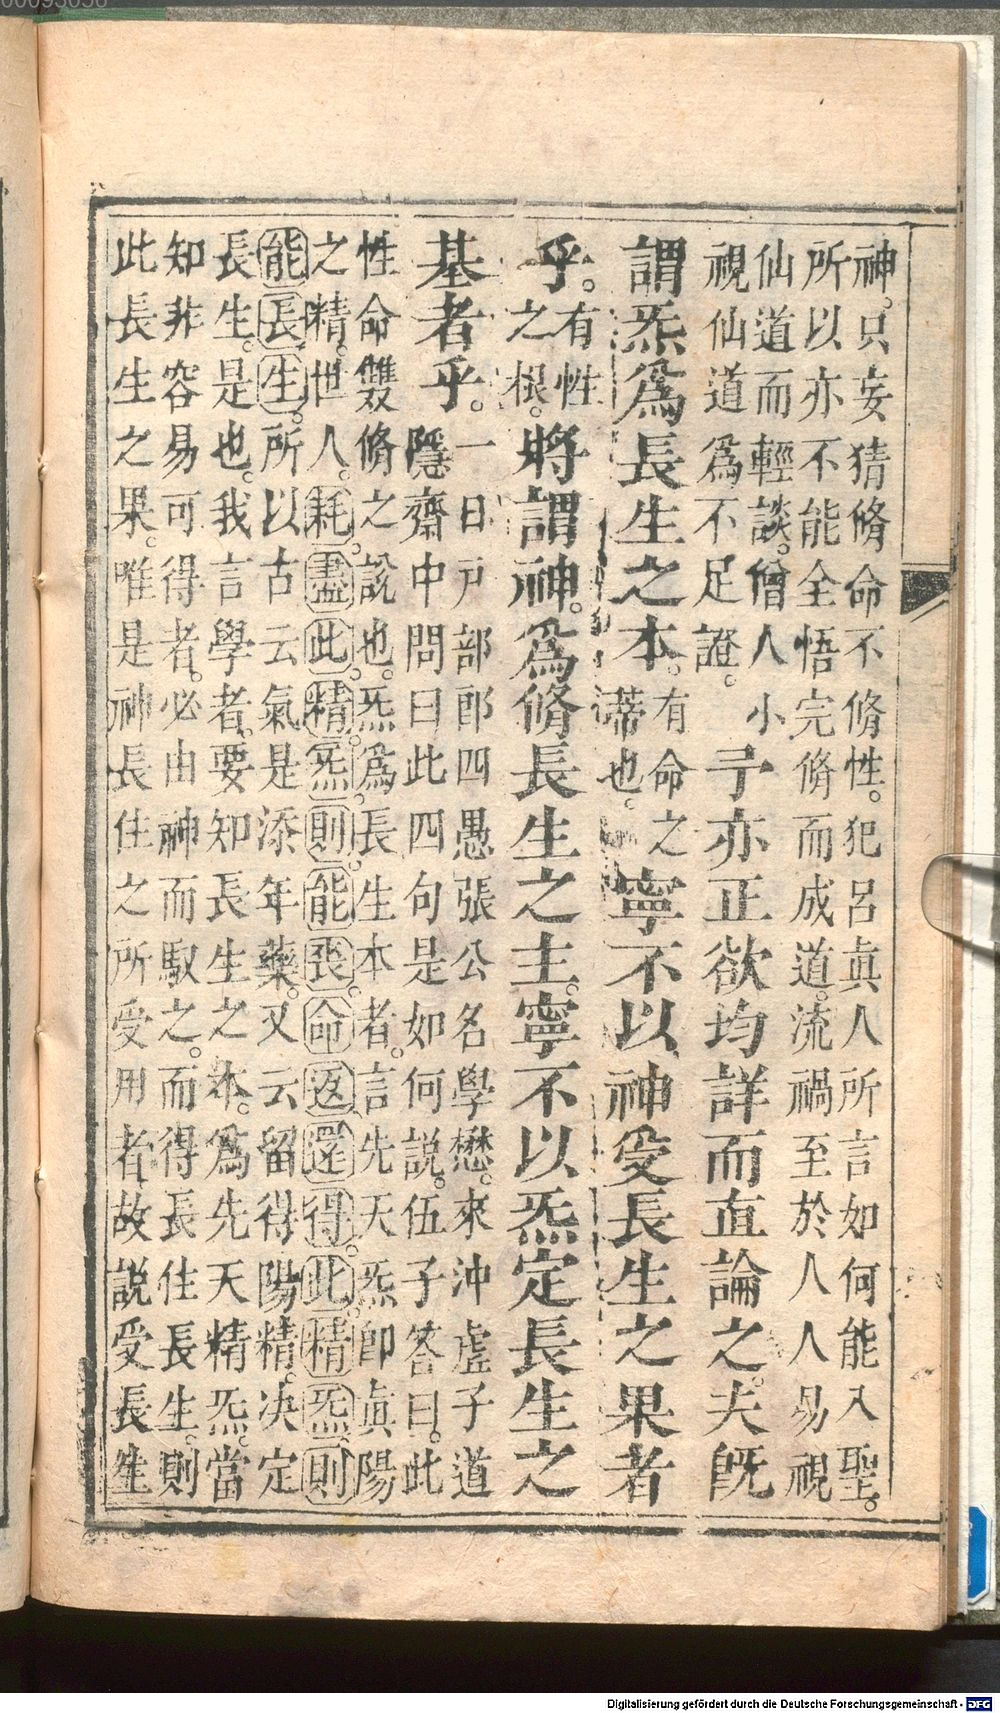 神。只妄猜脩命不脩性。犯呂眞人所言如何能入聖。
所以亦不能全悟完脩而成道。流禍至於人人易視
仙道而輕談。僧人小
視仙道爲不足證。
予亦正欲均詳而直論之。夫既
謂炁爲長生之本。有命之
蒂也。
寧不以神受長生之果者
乎。有性
之根。
將謂神。爲脩長生之主。寧不以炁定長生之
基者乎。
一日戸部郎四愚張公名學懋。來沖虛子道
隱齋中問曰此四句是如何說。伍子答曰。此
性命雙脩之說也。炁爲長生本者。言先天炁卽眞陽
之精。世人。耗盡此精炁。則能喪命返還得此精炁則
能長生。所以古云氣是添年藥。又云留得陽精。决定
長生。是也。我言學者。要知長生之本。爲先天精炁。當
知非容易可得者。必由神而馭之。而得長住長生。則
此長生之果。唯是神長住之所受用者故說受長生
00093056
Digitalisierung gefördert durch die Deutsche Forschungsgemeinschaft - DFG